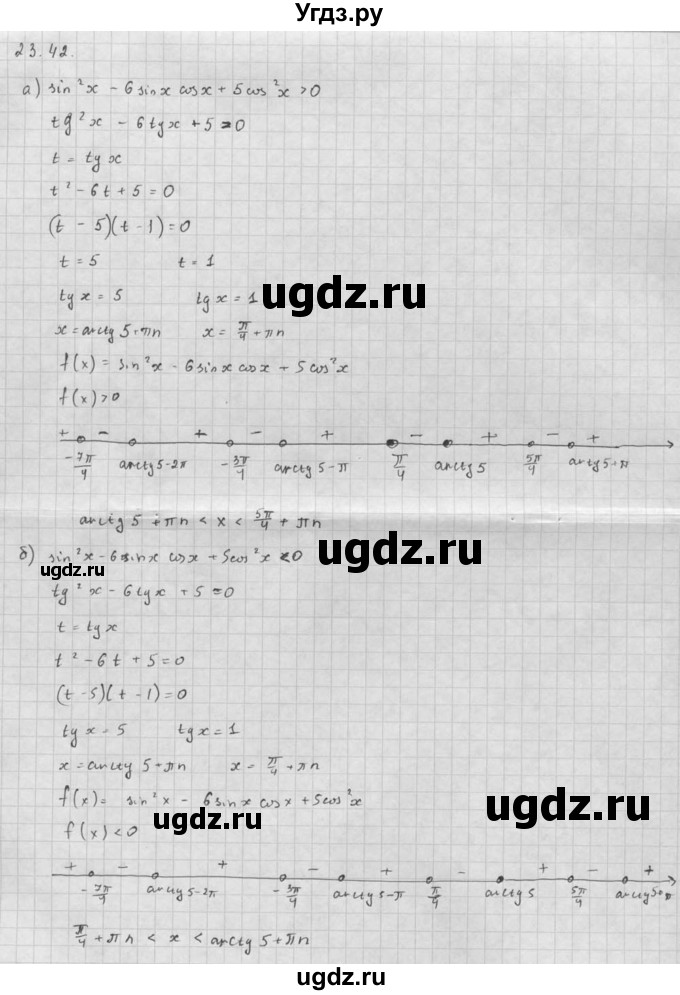 Угдз.ру
23.42.
а) sin²x - 6 sinx cosx + 5 cos²x > 0
tg²x - 6tgx + 5 = 0
t = tgx
t² - 6t + 5 = 0
(t - 5)(t - 1) = 0
t = 5 t = 1
tgx = 5 tgx = 1
ugdz.ru
x = arctg 5 + πn x = π/4 + πn
f(x) = sin²x - 6 sinx cosx + 5 cos²x
f(x) > 0
+ - + - + - + - +
-7π/4 arctg5-2π -3π/4 arctg5-π π/4 arctg5 5π/4 arctg5+π
arctg 5 + πn < x < 5π/4 + πn
б) sin²x - 6 sinx cosx + 5cos²x < 0
ugdz.ru
ugdz.ru
tg²x - 6tgx + 5 = 0
t = tgx
t² - 6t + 5 = 0
(t - 5)(t - 1) = 0
tgx = 5 tgx = 1
x = arctg 5 + πn x = π/4 + πn
f(x) = sin²x - 6sinx cosx + 5cos²x
ugdz.ru
ugdz.ru
f(x) < 0
+ - + - + - + - +
-7π/4 arctg5-2π -3π/4 arctg5-π π/4 arctg5 5π/4 arctg5+π
π/4 + πn < x < arctg 5 + πn
ugdz.ru